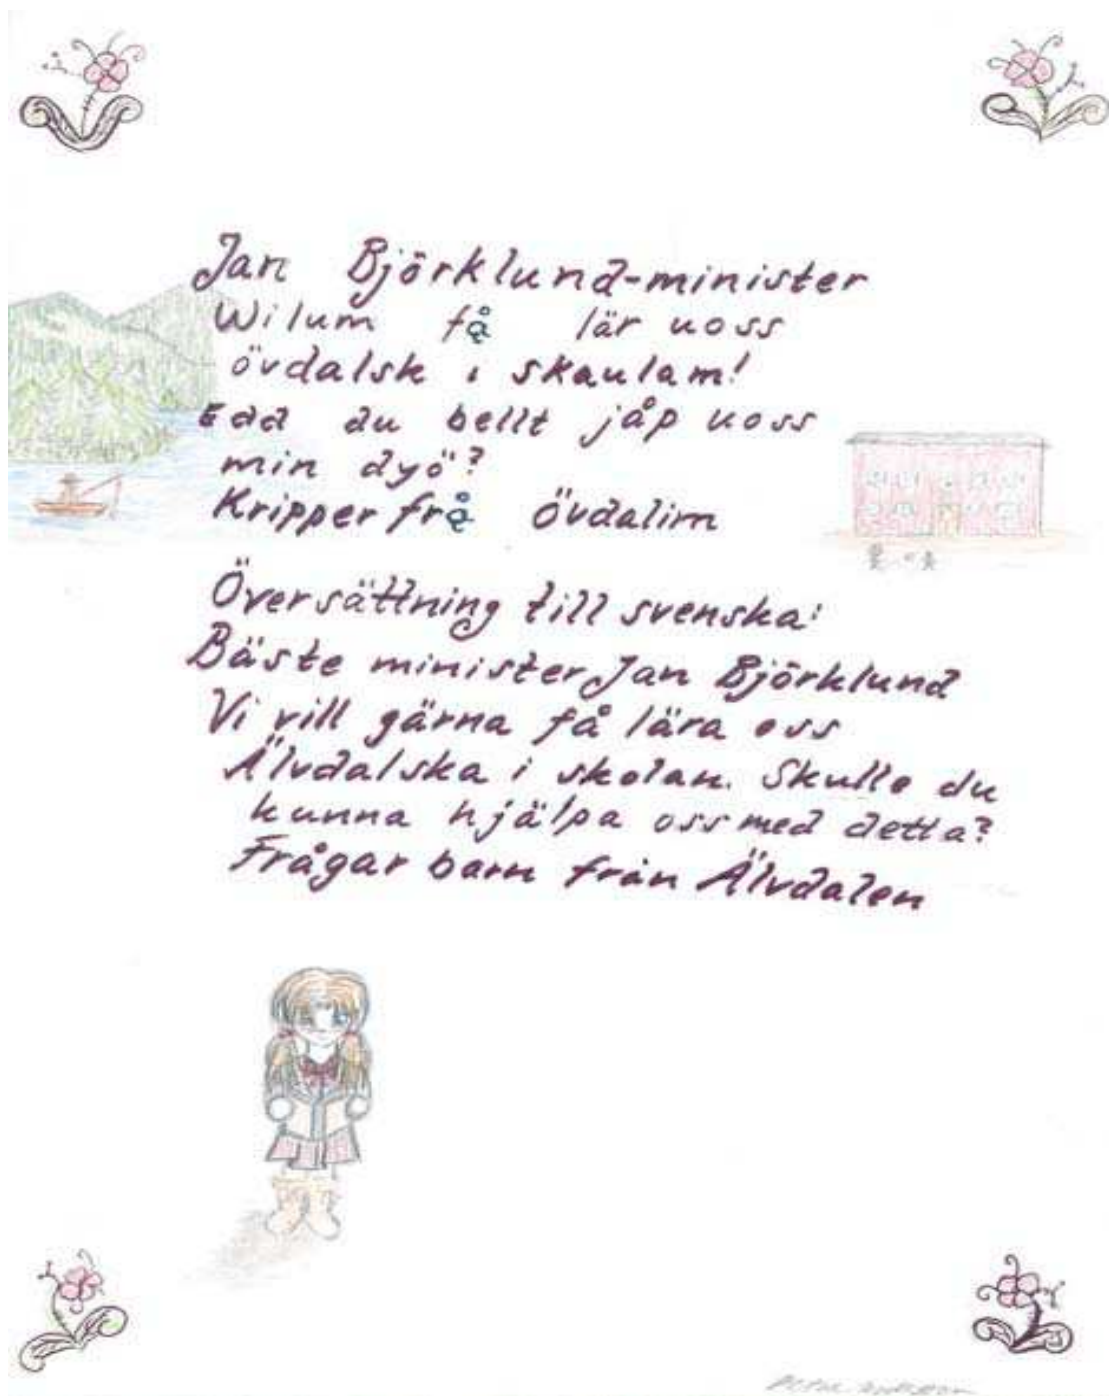 Jan Björklund-minister
Wilum fą̊ lär uoss
övdalsk i skaulam!
Edd du bellt jåp uoss
min dyö?
Kripper frą̊ Övdalim
Översättning till svenska:
Bäste minister Jan Björklund
Vi vill gärna få lära oss
Älvdalska i skolan. Skulle du
kunna hjälpa oss med detta?
Frågar barn från Älvdalen